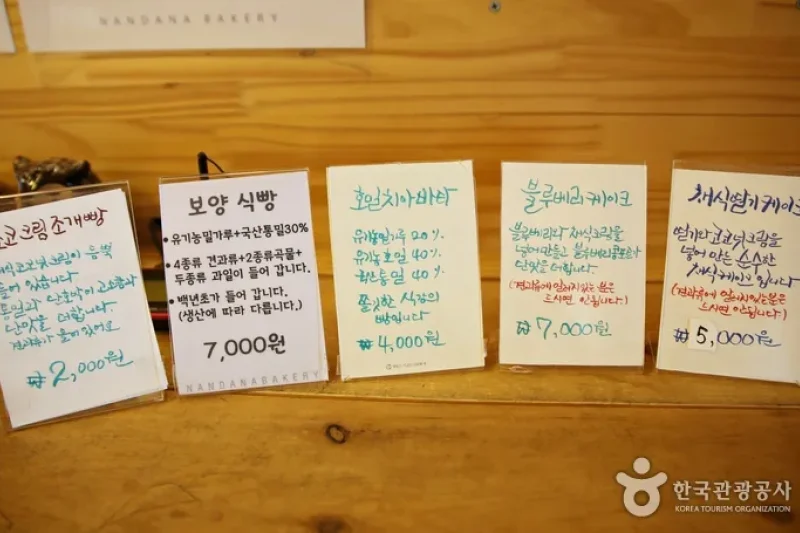 NANDANA BAKERY
코코크림 조개빵
코코넛크림이 듬뿍
들어 있습니다
통밀과 단호박이 고소함과
단맛을 더합니다.
견과류가 들어 있어요
₩ 2,000원
보양 식빵
• 유기농밀가루+국산통밀30%
• 4종류 견과류+2종류곡물+
두종류 과일이 들어 갑니다.
• 백년초가 들어 갑니다.
(생산에 따라 다릅니다.)
7,000원
NANDANABAKERY
호밀치아바타
유기농밀가루 20%
유기농호밀 40%
국산통밀 40%
쫄깃한 식감의
빵입니다
₩ 4,000원
블루베리케이크
블루베리와 채식크림을
넣어만들고
단맛을 더합니다.
(견과류에 알러지있는 분은
드시면 안됩니다.)
₩ 7,000원
채식딸기케이크
딸기와 코코넛크림을
넣어 만든
채식케이크 입니다
(견과류에 알러지있는분은
드시면 안됩니다.)
₩ 5,000원
한국관광공사
KOREA TOURISM ORGANIZATION